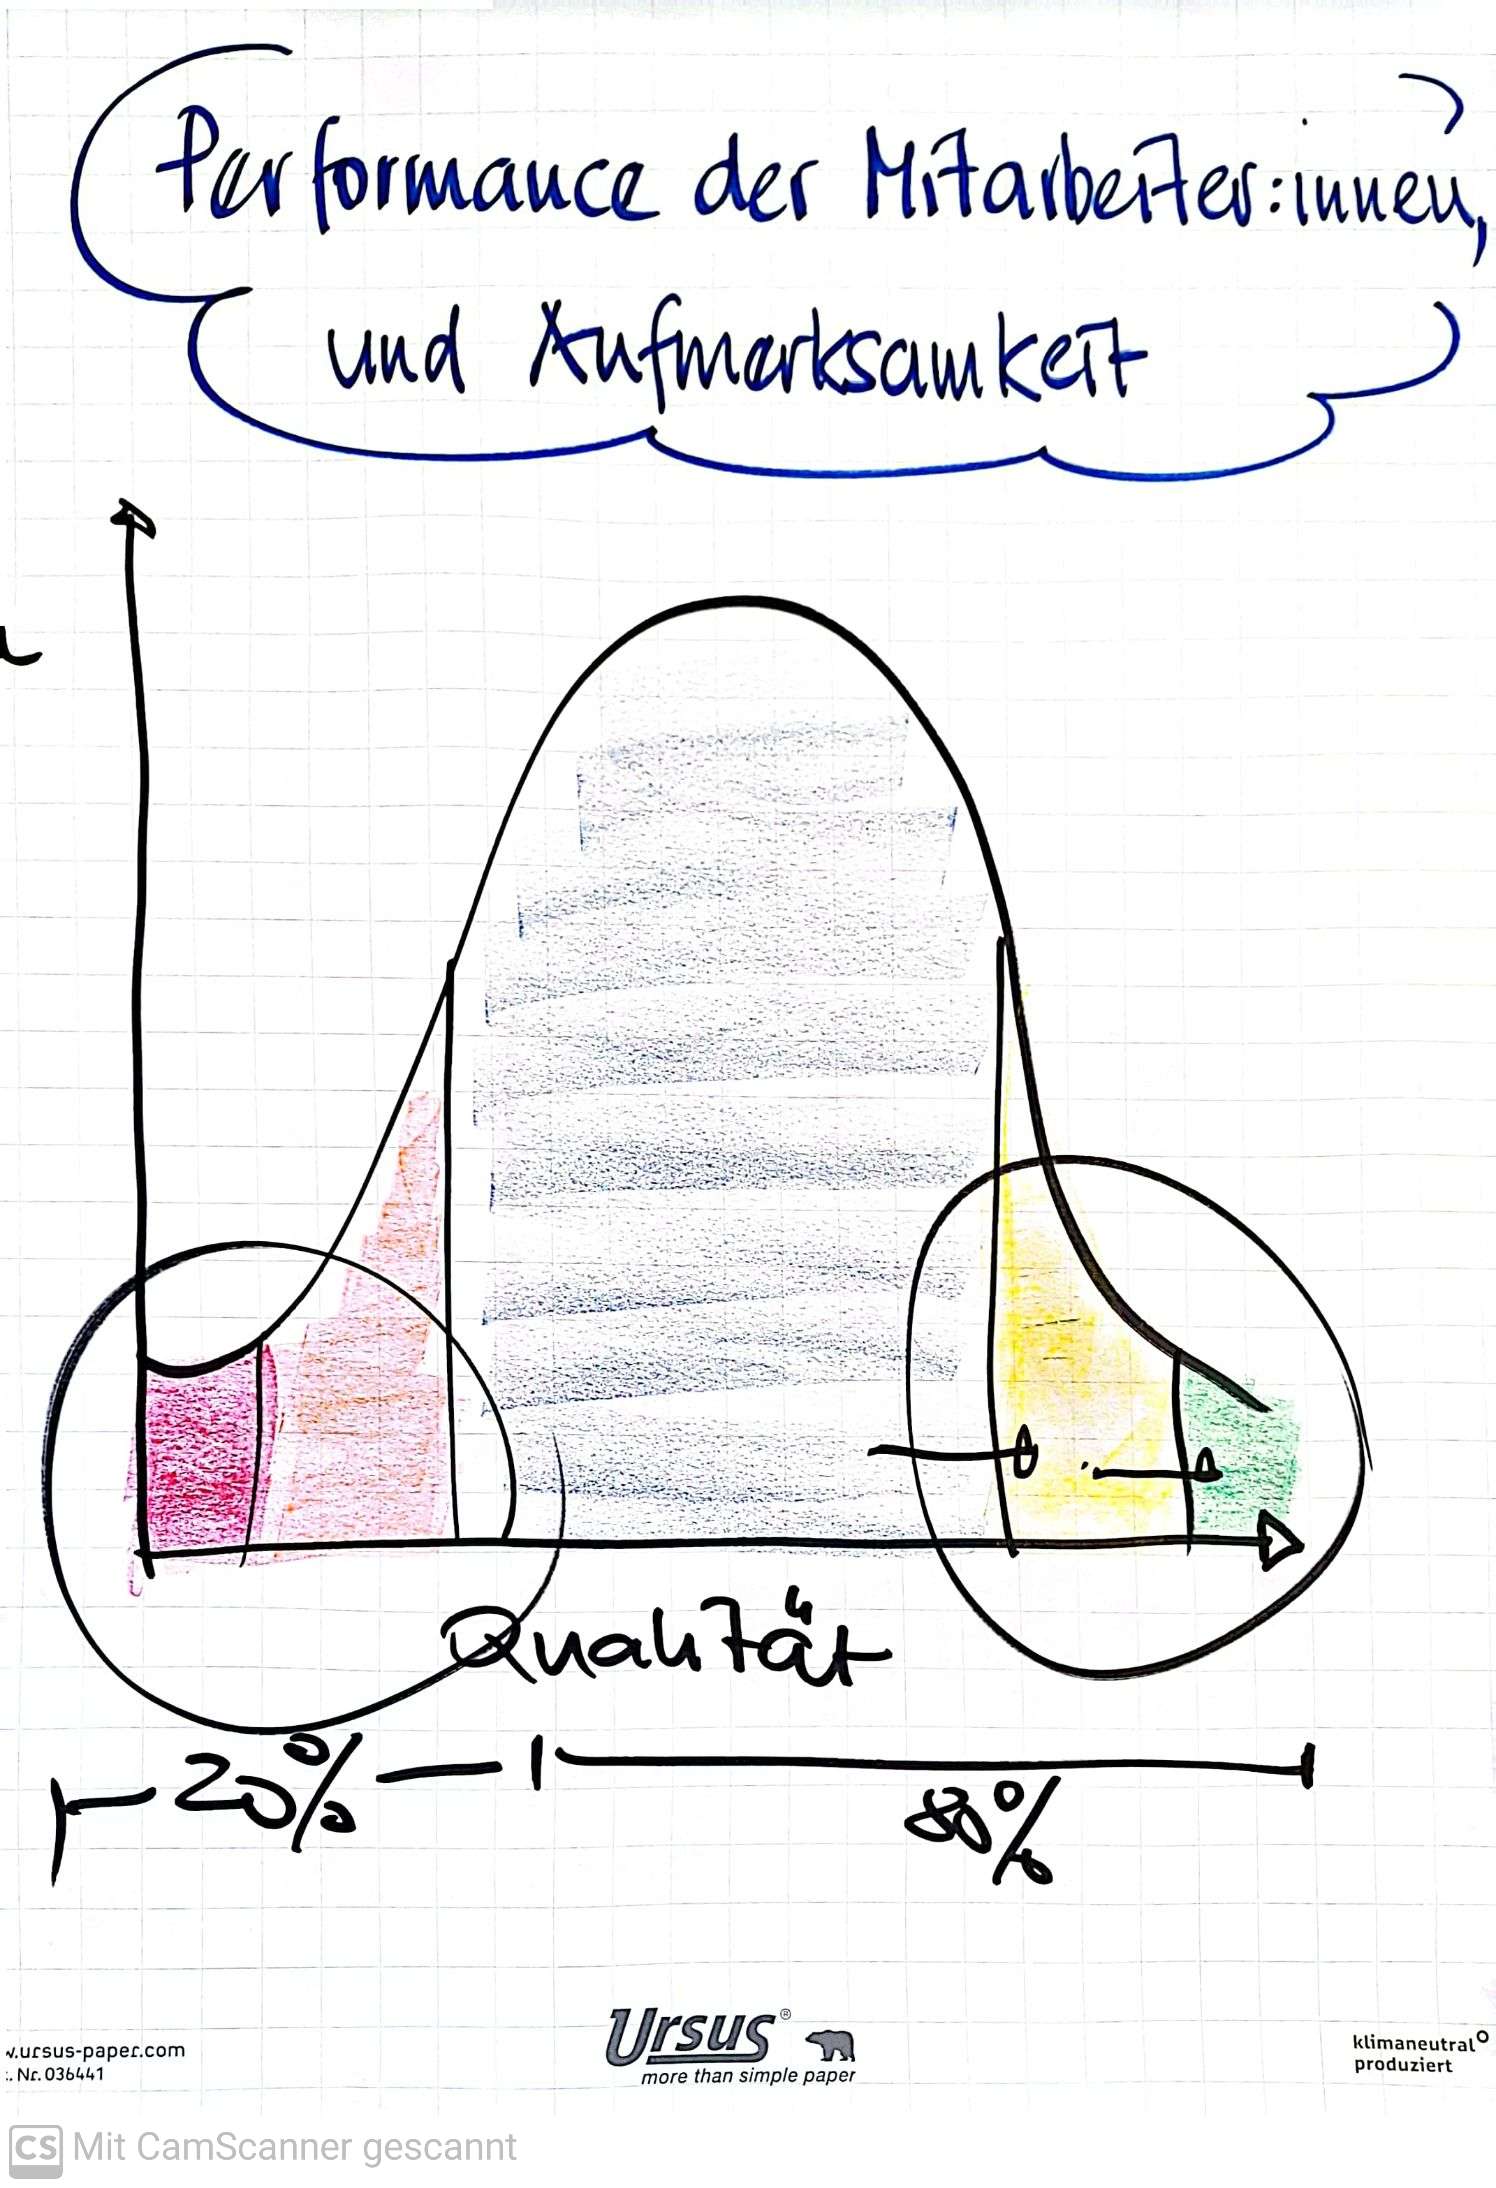 Performance der Mitarbeiter:innen,
und Aufmerksamkeit
Qualität
20%
80%
Ursus®
more than simple paper
w.ursus-paper.com
. Nr. 036441
klimaneutral
produziert
CS Mit CamScanner gescannt